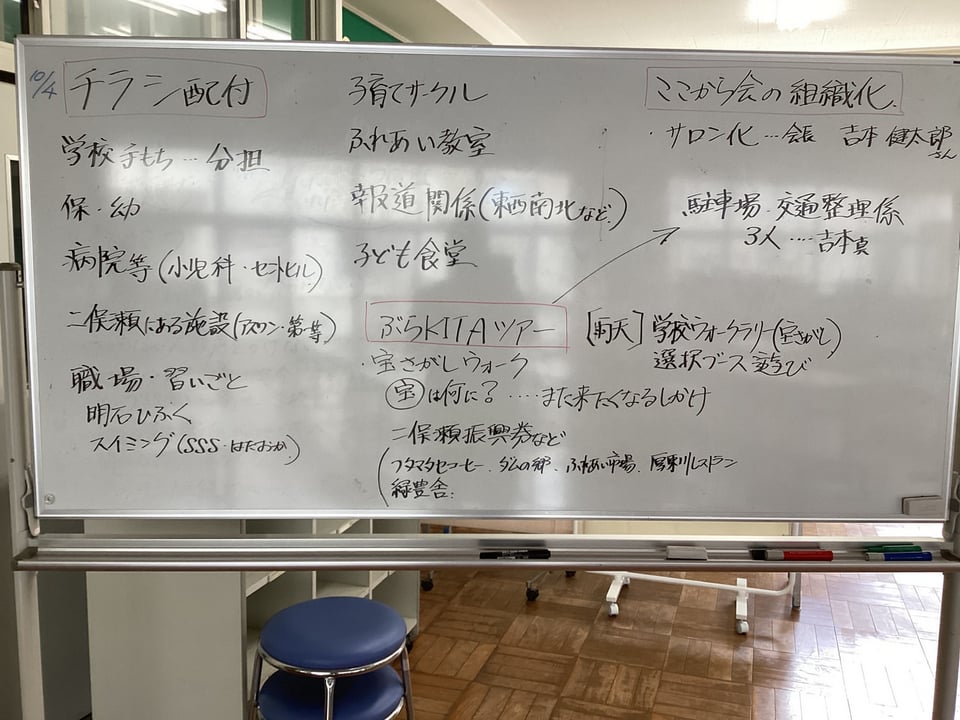 10/4
チラシ配付
学校手もち…分担
保・幼
病院等(小児科・セントヒル)
二俣瀬にある施設(アスワン・第一等)
職場・習いごと
明石ひふく
スイミング(SSS・はたおか)
子育てサークル
ふれあい教室
報道関係(東西南北など)
子ども食堂
ぶらKITAツアー
・宝さがしウォーク
宝は何に?‥‥また来たくなるしかけ
二俣瀬振興券など
(フタマタセコーヒー、ダムの郷、ふれあい市場、厚東川レストラン
緑豊舎.
ここから会の組織化.
・サロン化…会長 吉本健太郎さん
駐車場・交通整理係
3人‥‥吉本真
[雨天]学校ウォークラリー(宝さがし)
選択ブース遊び